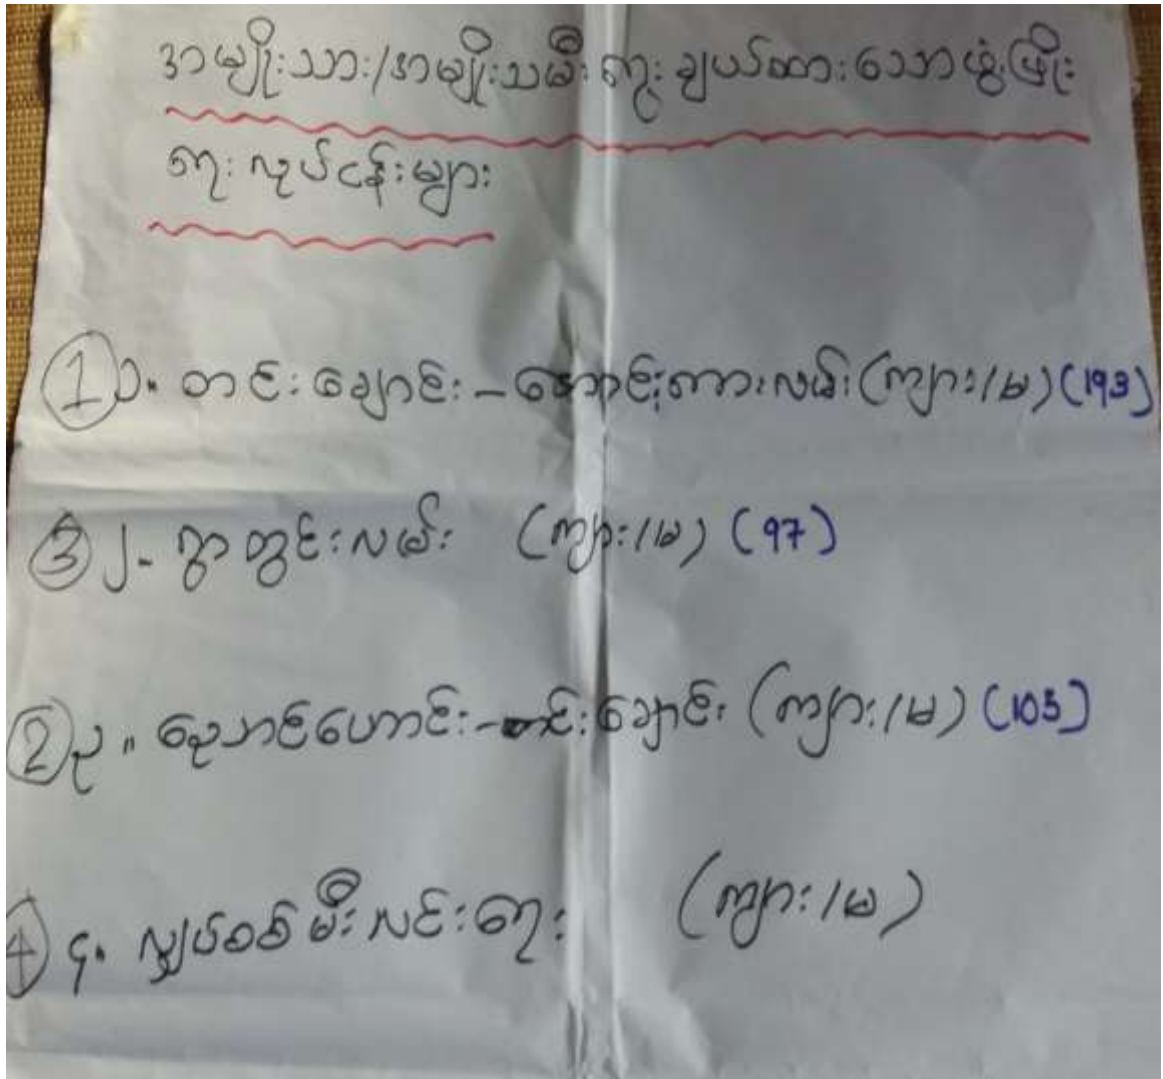 အမျိုးသား/အမျိုးသမီး ရွေးချယ်ထားသောဖွံ့ဖြိုး
ရေးလုပ်ငန်းများ
① ၁။ တင်းချောင်း - အောင်းကားလမ်း (ကျား/မ) (193)
③ ၂- ရွာတွင်းလမ်း (ကျား/မ) (97)
② ၃။ ညောင်ဟောင်း-တင်းချောင်း (ကျား/မ) (105)
④ ၄။ လျှပ်စစ်မီးလင်းရေး (ကျား/မ)